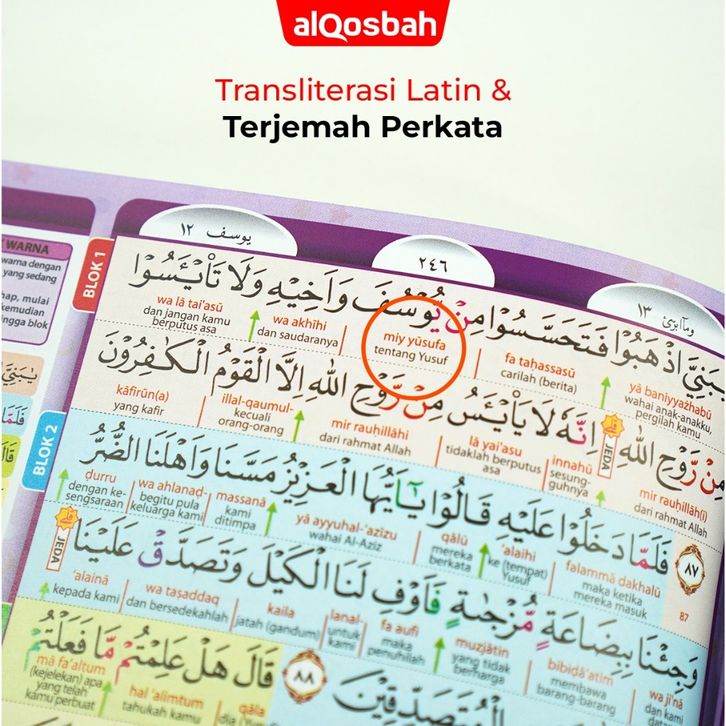 alQosbah
Transliterasi Latin &
Terjemah Perkata
يوسف ١٢
٢٤٦
وماابرئ ١٣
WARNA
warna dengan
yang sedang
mulai
kemudian
hingga blok
BLOK 1
يٰبَنِيَّ اذْهَبُوْا فَتَحَسَّسُوْا مِنْ يُّوْسُفَ وَاَخِيْهِ وَلَا تَا۟يْـَٔسُوْا
yā baniyyażhabū
wahai anak-anakku, pergilah kamu
fa taḥassasū
carilah (berita)
miy yūsufa
tentang Yusuf
wa akhīhi
dan saudaranya
wa lā tai'asū
dan jangan kamu berputus asa
مِنْ رَّوْحِ اللّٰهِ اِنَّهٗ لَا يَا۟يْـَٔسُ مِنْ رَّوْحِ اللّٰهِ اِلَّا الْقَوْمُ الْكٰفِرُوْنَ
JEDA
mir rauḥillāh(i)
dari rahmat Allah
innahū
sesungguhnya
lā yai'asu
tidaklah berputus asa
mir rauḥillāhi
dari rahmat Allah
illal-qaumul-
kecuali orang-orang
kāfirūn(a)
yang kafir
BLOK 2
٨٧
87
فَلَمَّا دَخَلُوْا عَلَيْهِ قَالُوْا يٰٓاَيُّهَا الْعَزِيْزُ مَسَّنَا وَاَهْلَنَا الضُّرُّ
falammā dakhalū
maka ketika mereka masuk
'alaihi
ke (tempat) Yusuf
qālū
mereka berkata
yā ayyuhal-'azīzu
wahai Al-Azīz
massanā
kami ditimpa
wa ahlanaḍ-
begitu pula keluarga kami
ḍurru
dengan kesengsaraan
وَجِئْنَا بِبِضَاعَةٍ مُّزْجٰىةٍ فَاَوْفِ لَنَا الْكَيْلَ وَتَصَدَّقْ عَلَيْنَا
JEDA
wa ji'nā
dan kami
bibiḍā'atim
membawa barang-barang
muzjātin
yang tidak berharga
fa aufi
maka penuhilah
lanal-
untuk kami
kaila
jatah (gandum)
wa taṣaddaq
dan bersedekahlah
'alainā
kepada kami
الْمُتَصَدِّقِيْنَ
٨٨
قَالَ هَلْ عَلِمْتُمْ مَّا فَعَلْتُمْ
qāla
hal 'alimtum
tahukah kamu
mā fa'altum
(kejelekan) apa yang telah kamu perbuat